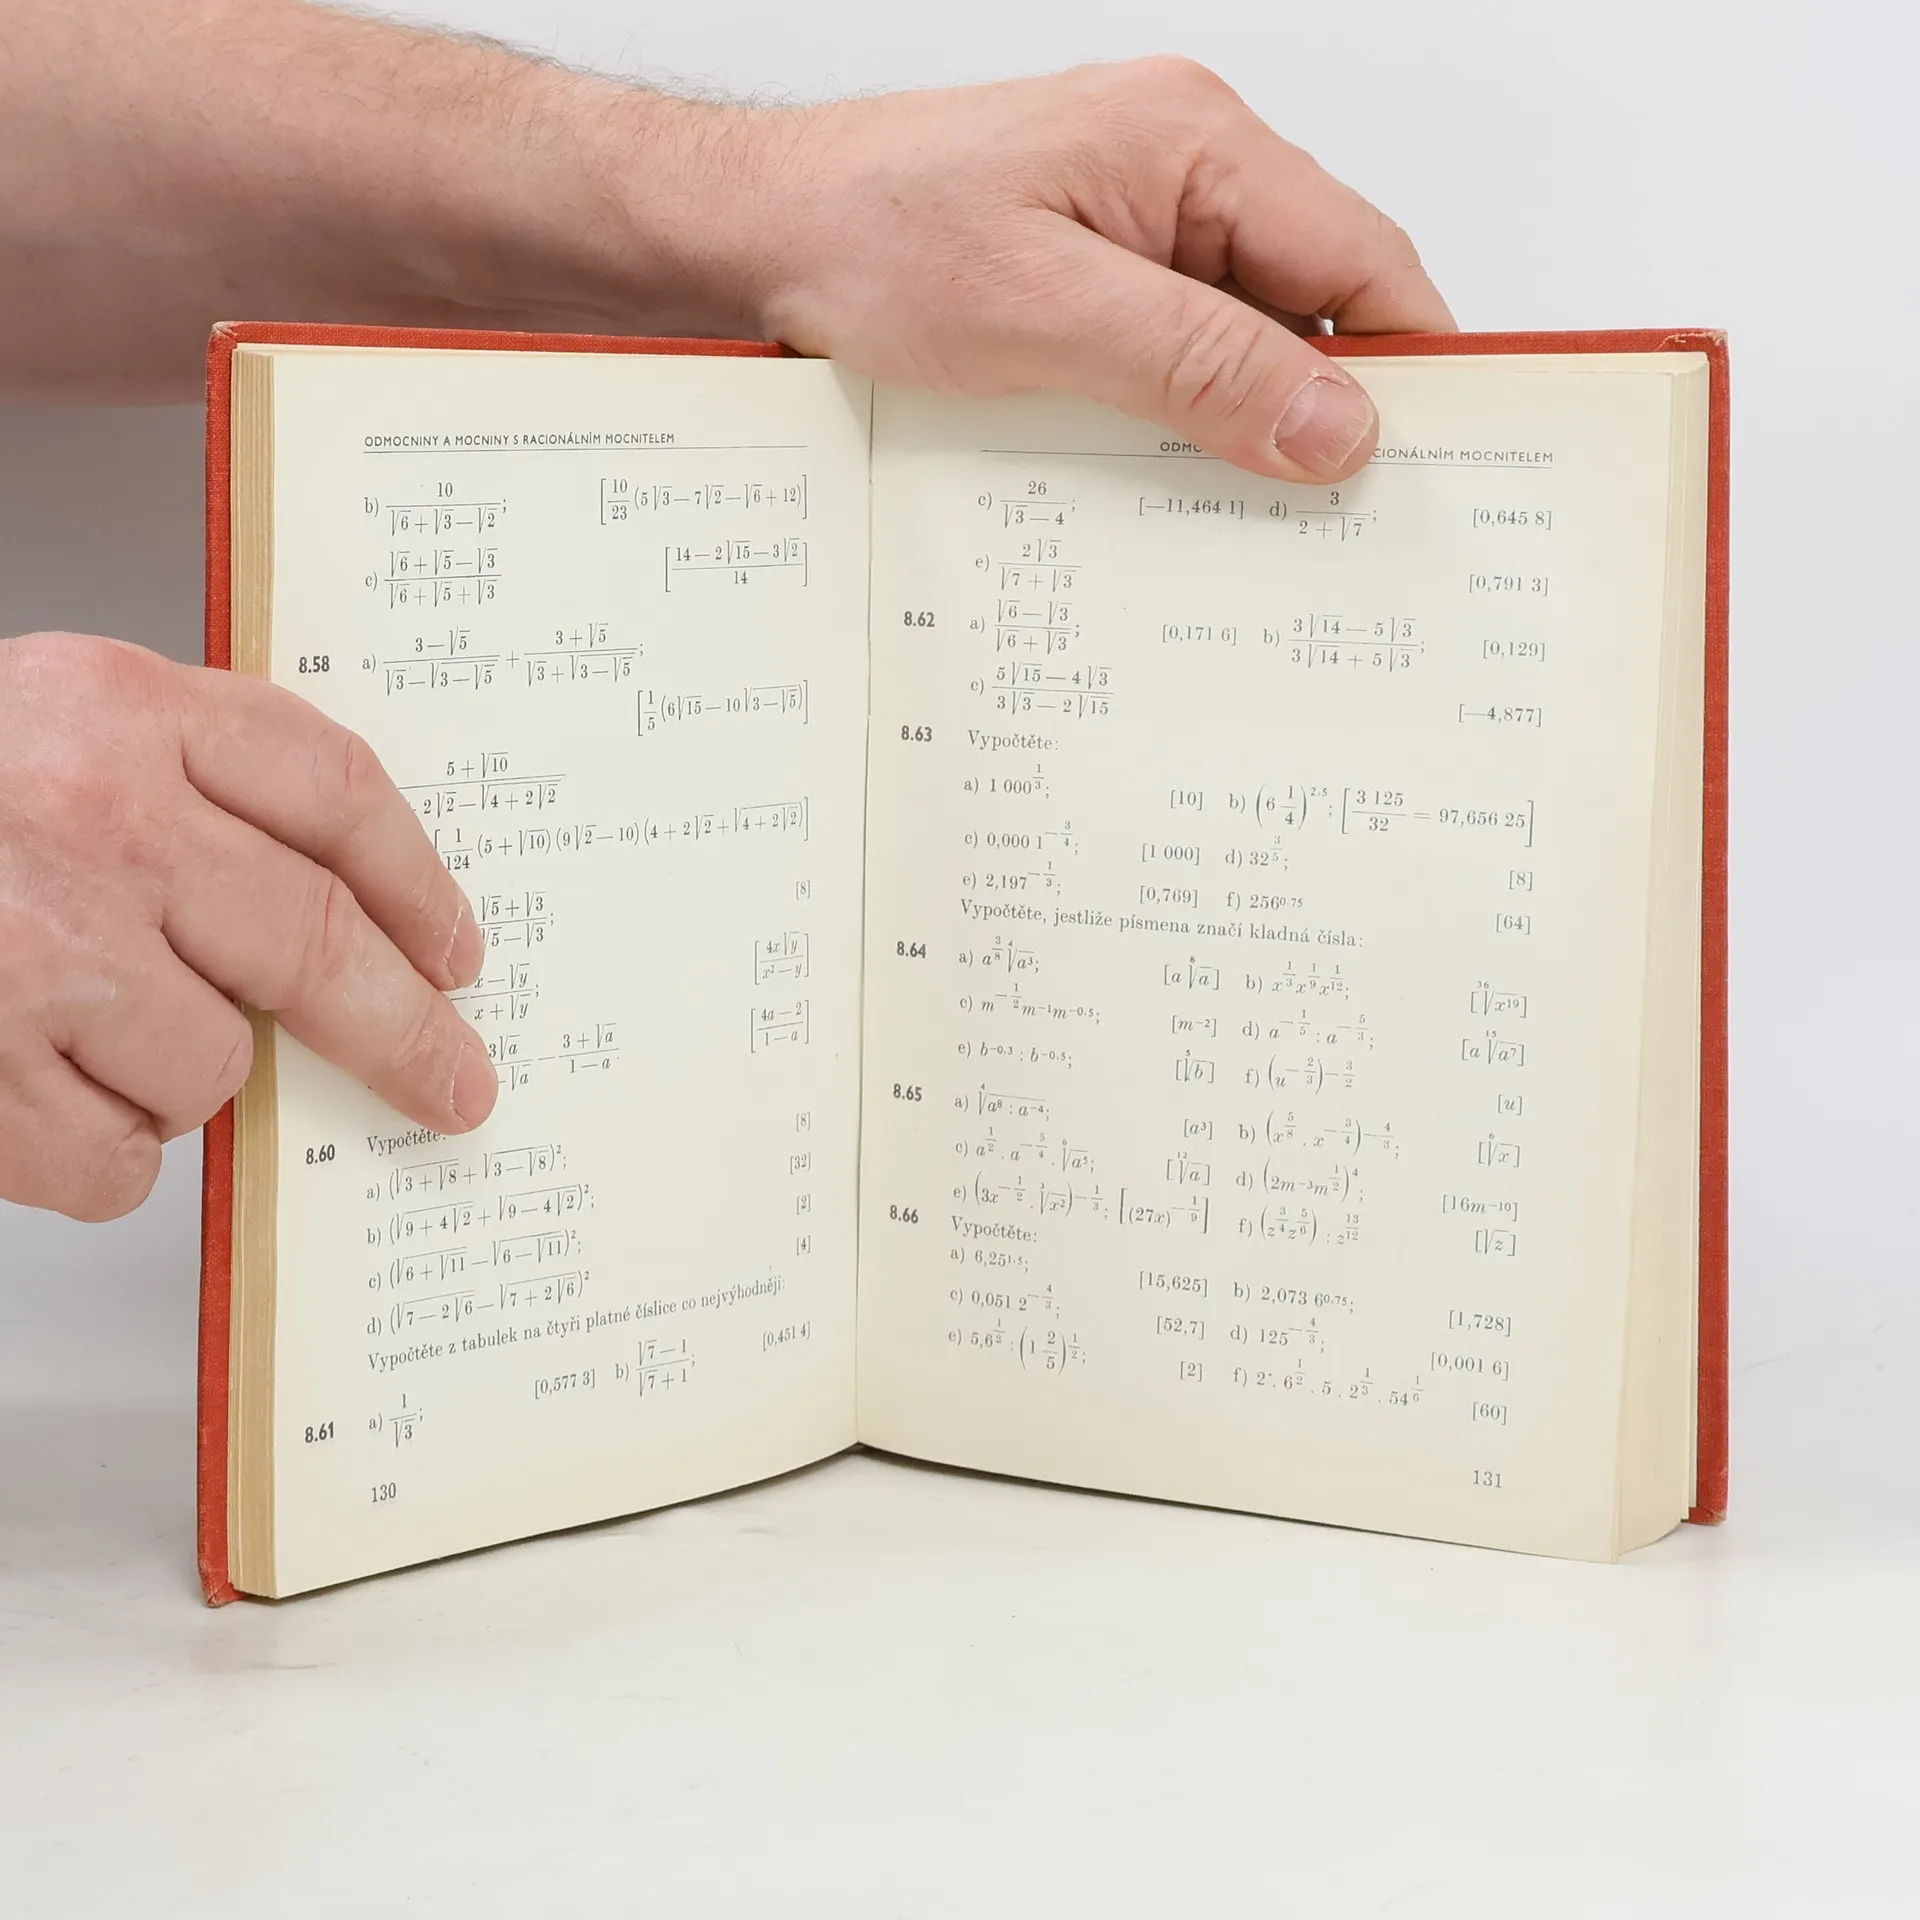 ODMOCNINY A MOCNINY S RACIONÁLNÍM MOCNITELEM
b) 10/(√6 + √3 − √2); [10/23 (5√3 − 7√2 − √6 + 12)]
c) (√6 + √5 − √3)/(√6 + √5 + √3) [(14 − 2√15 − 3√2)/14]
8.58 a) (3 − √5)/(√3 − √(3 − √5)) + (3 + √5)/(√3 + √(3 − √5));
[1/5 (6√15 − 10√(3 − √5))]
5 + √10
2√2 − √(4 + 2√2)
[1/124 (5 + √10) (9√2 − 10) (4 + 2√2 + √(4 + 2√2))]
(√5 + √3)/(√5 − √3); [8]
(x − √y)/(x + √y); [4x√y/(x² − y)]
3√a/−√a − (3 + √a)/(1 − a) [(4a − 2)/(1 − a)]
8.60 Vypočtěte:
a) (√(3 + √8) + √(3 − √8))²; [8]
b) (√(9 + 4√2) + √(9 − 4√2))²; [32]
c) (√(6 + √11) − √(6 − √11))²; [2]
d) (√(7 − 2√6) − √(7 + 2√6))² [4]
Vypočtěte z tabulek na čtyři platné číslice co nejvýhodněji:
8.61 a) 1/√3; [0,577 3] b) (√7 − 1)/(√7 + 1); [0,451 4]
130
CIONÁLNÍM MOCNITELEM
c) 26/(√3 − 4); [—11,464 1] d) 3/(2 + √7); [0,645 8]
e) 2√3/(√7 + √3) [0,791 3]
8.62 a) (√6 — √3)/(√6 + √3); [0,171 6] b) (3√14 — 5√3)/(3√14 + 5√3); [0,129]
c) (5√15 — 4√3)/(3√3 — 2√15) [—4,877]
8.63 Vypočtěte:
a) 1 000^(1/3); [10] b) (6 1/4)^2,5; [3 125/32 = 97,656 25]
c) 0,000 1^(−3/4); [1 000] d) 32^(3/5); [8]
e) 2,197^(−1/3); [0,769] f) 256^0,75 [64]
Vypočtěte, jestliže písmena značí kladná čísla:
8.64 a) a^(3/8) ⁴√a³; [a ⁸√a] b) x^(1/3) x^(1/9) x^(1/12); [³⁶√x¹⁹]
c) m^(−1/2) m^−1 m^−0,5; [m^−2] d) a^(−1/5) : a^(−5/3); [a ¹⁵√a⁷]
e) b^−0,3 : b^−0,5; [⁵√b] f) (u^(−2/3))^(−3/2) [u]
8.65 a) ⁴√(a⁸ : a^−4); [a³] b) (x^(5/8) . x^(−3/4))^(−4/3); [⁶√x]
c) a^(1/2) . a^(−5/4) . ⁶√a⁵; [¹²√a] d) (2m^−3 m^(1/2))⁴; [16m^−10]
e) (3x^(−1/2) . ³√x²)^(−1/3); [(27x)^(−1/9)] f) (z^(3/4) z^(5/6)) : z^(13/12) [√z]
8.66 Vypočtěte:
a) 6,25^1,5; [15,625] b) 2,073 6^0,75; [1,728]
c) 0,051 2^(−4/3); [52,7] d) 125^(−4/3); [0,001 6]
e) 5,6^(1/2) : (1 2/5)^(1/2); [2] f) 2 . 6^(1/2) . 5 . 2^(1/3) . 54^(1/6) [60]
131